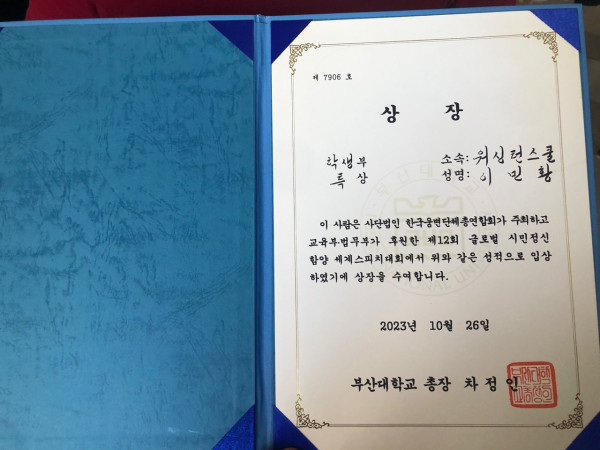 제 7906 호
상 장
학생부 소속: 워싱턴스쿨
특상 성명: 이 민 황
이 사람은 사단법인 한국웅변단체총연합회가 주최하고
교육부·법무부가 후원한 제12회 글로벌 시민정신
함양 세계스피치대회에서 위와 같은 성적으로 입상
하였기에 상장을 수여합니다.
2023년 10월 26일
부산대학교 총장 차 정 인